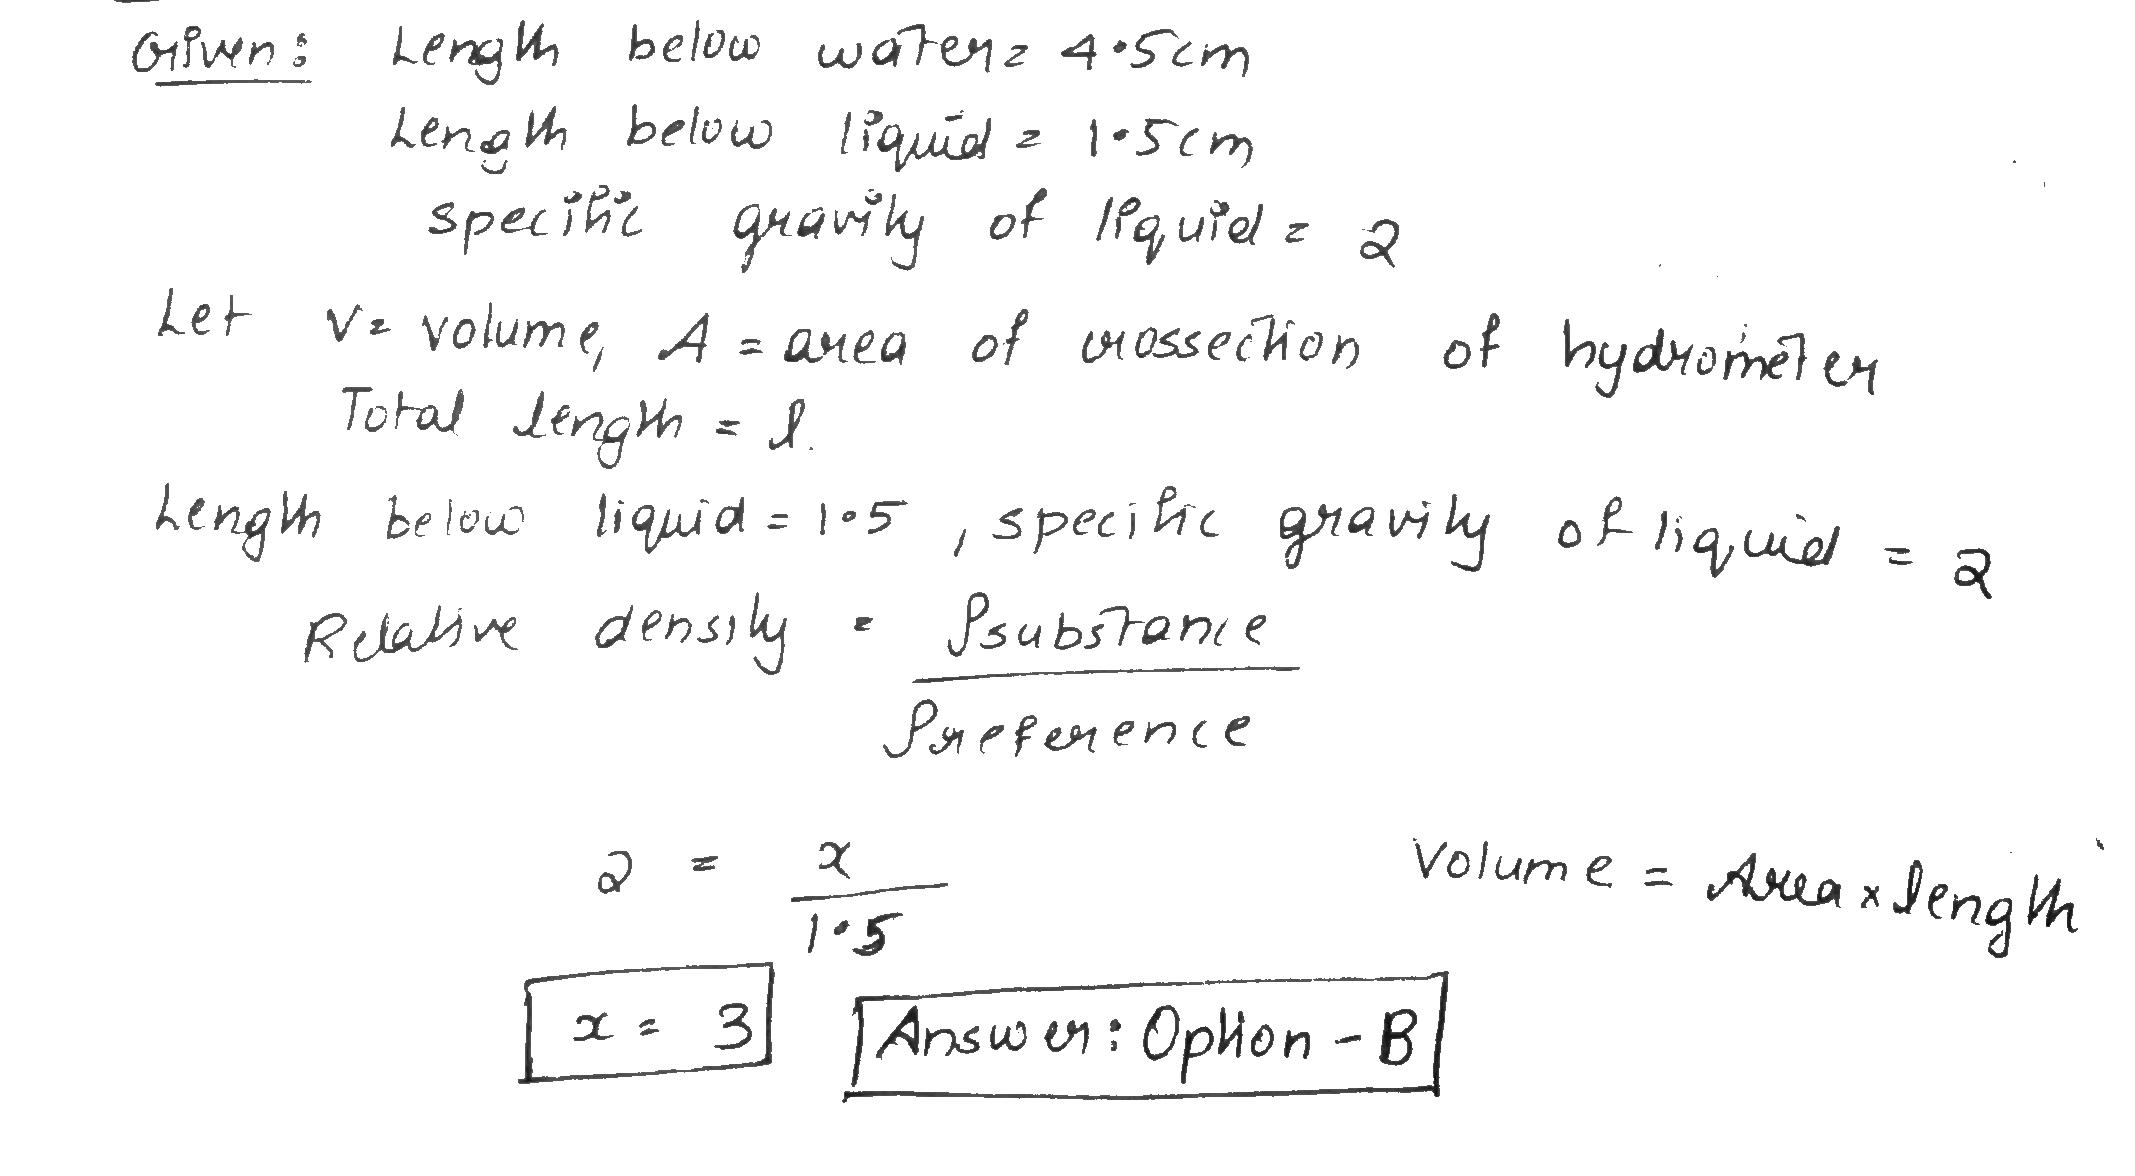 Given: Length below water = 4.5cm
Length below liquid = 1.5cm
specific gravity of liquid = 2
Let V = volume, A = area of crossection of hydrometer
Total length = l.
Length below liquid = 1.5, specific gravity of liquid = 2
Relative density = ρsubstance
ρreference
2 = x Volume = Area × length
1.5
x = 3 Answer: Option - B